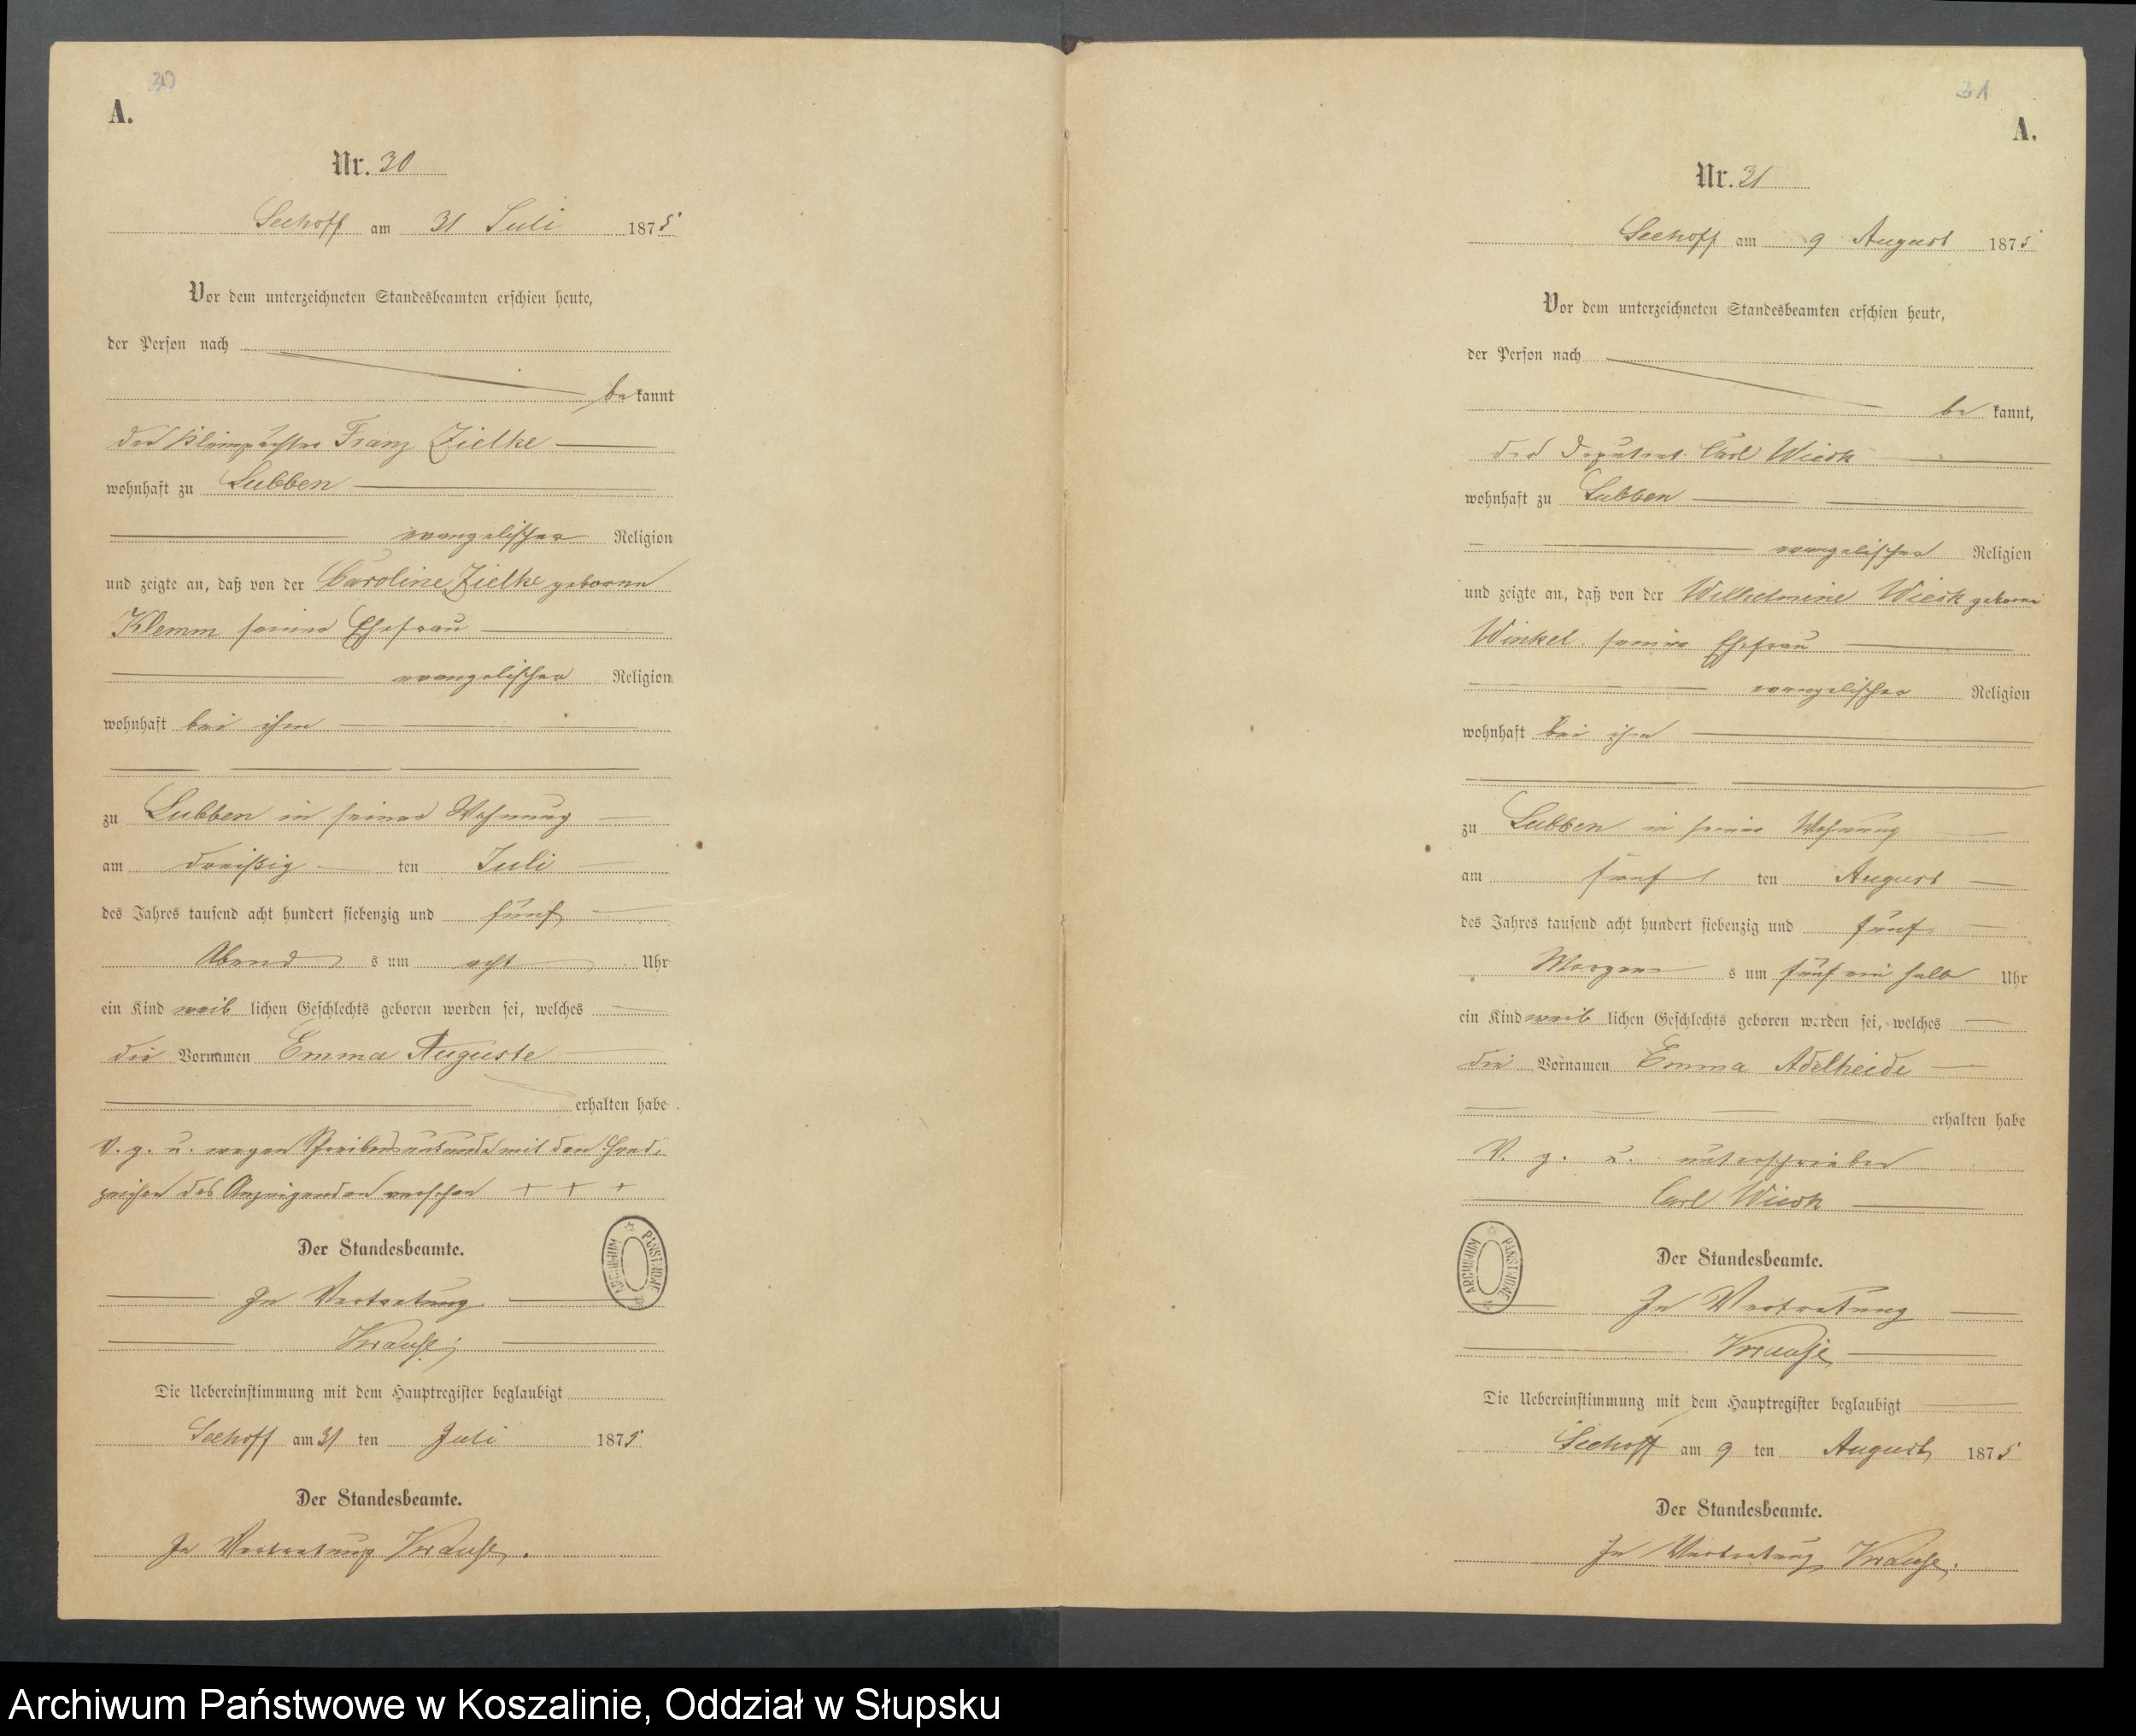 30
A.
Nr. 30
Seehoff am 31 Juli 1875
Vor dem unterzeichneten Standesbeamten erschien heute,
der Person nach
be kannt
der Kleinpächter Franz Zielke
wohnhaft zu Lubben
evangelischer Religion
und zeigte an, daß von der Caroline Zielke geborne
Klemm seiner Ehefrau
evangelischer Religion
wohnhaft bei ihm
zu Lubben in seiner Wohnung
am dreißig ten Juli
des Jahres tausend acht hundert siebenzig und fünf
Abend s um acht Uhr
ein Kind weib lichen Geschlechts geboren worden sei, welches
die Vornamen Emma Auguste
erhalten habe
V. g. u. wegen Schreibensunkunde mit den Hand-
zeichen des Anzeigenden versehen + + +
Der Standesbeamte.
ARCHIWUM PAŃSTWOWE
In Vertretung
Krause
Die Uebereinstimmung mit dem Hauptregister beglaubigt
Seehoff am 31 ten Juli 1875
Der Standesbeamte.
In Vertretung Krause.
31
A.
Nr. 31
Seehoff am 9 August 1875
Vor dem unterzeichneten Standesbeamten erschien heute,
der Person nach
be kannt,
der Deputant Carl Wiesk
wohnhaft zu Lubben
evangelischer Religion
und zeigte an, daß von der Wilhelmine Wiesk geborne
Winkel seiner Ehefrau
evangelischer Religion
wohnhaft bei ihm
zu Lubben in seiner Wohnung
am fünf ten August
des Jahres tausend acht hundert siebenzig und fünf
Morgen s um fünf ein halb Uhr
ein Kind weib lichen Geschlechts geboren worden sei, welches
die Vornamen Emma Adelheide
erhalten habe
V. g. u. unterschrieben
Carl Wiesk
Der Standesbeamte.
ARCHIWUM PAŃSTWOWE
In Vertretung
Krause
Die Uebereinstimmung mit dem Hauptregister beglaubigt
Seehoff am 9 ten August 1875
Der Standesbeamte.
In Vertretung Krause.
Archiwum Państwowe w Koszalinie, Oddział w Słupsku